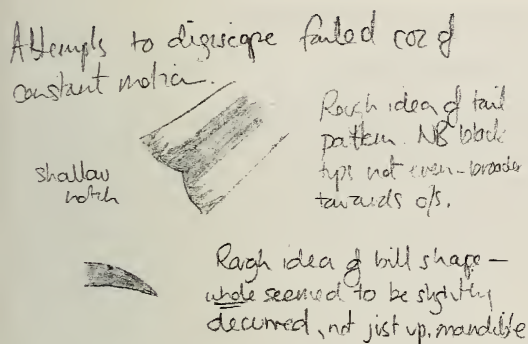 Attempts to digiscope failed coz of
constant motion.
Rough idea of tail
pattern. NB black
tips not even – broader
towards o/s.
shallow
notch
Rough idea of bill shape –
whole seemed to be slightly
decurved, not just up. mandible